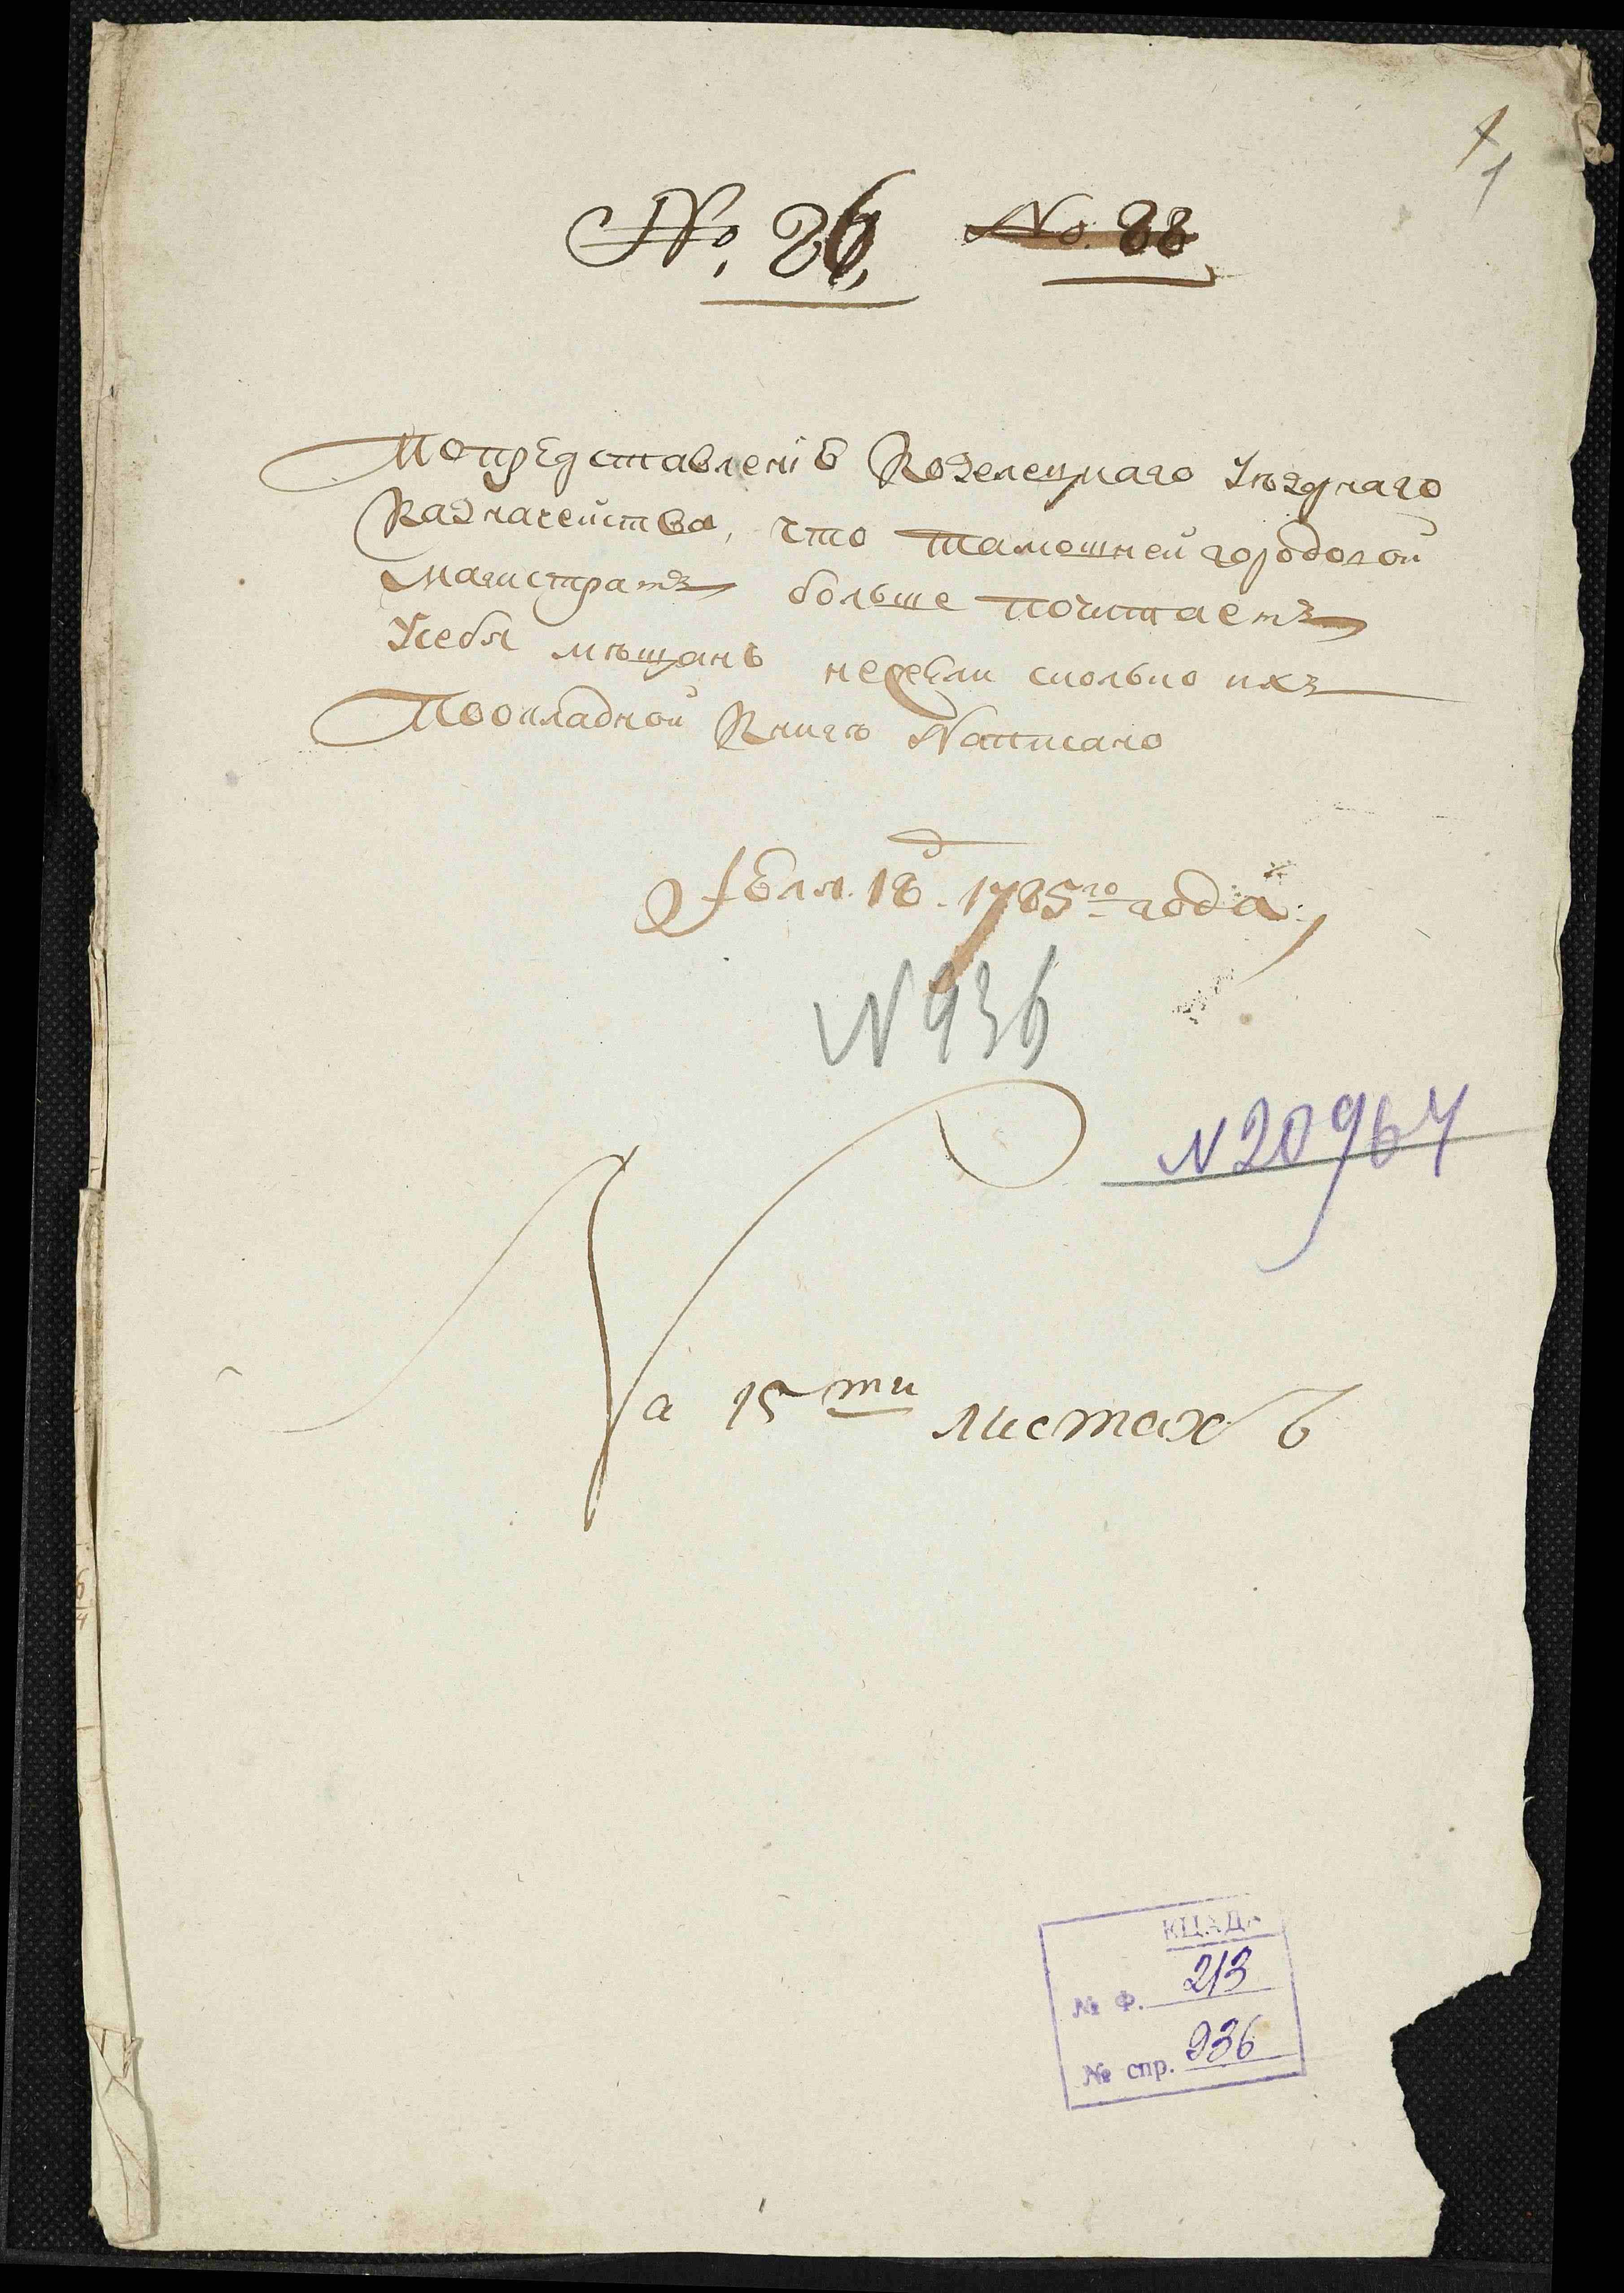 1
1
No. 26, No. 88
Попредставленію Козелецкаго Уѣзднаго
Казначейства, что тамошней городовой
магистратъ больше почитаетъ
Усебя мѣщанъ нежели сколько ихъ
Поокладной Книгѣ Написано
18. 1785го года
N 936
N 20964
На 15ти листахъ
ЕЦАДА
№ Ф. 213
№ спр. 936